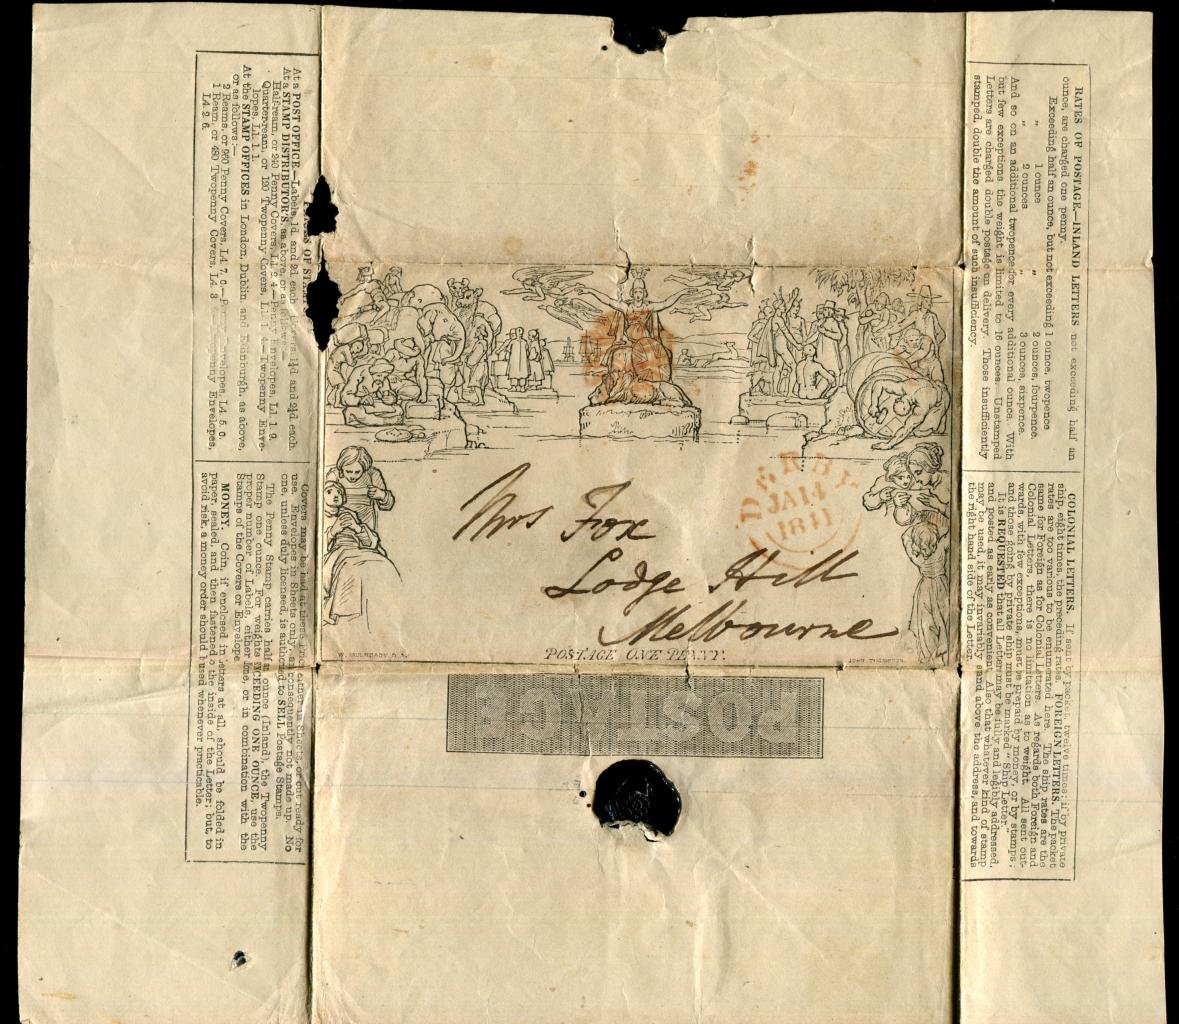 RATES OF POSTAGE.—INLAND LETTERS not exceeding half an
ounce, are charged one penny.
Exceeding half an ounce, but not exceeding 1 ounce, twopence
„ 1 ounce „ 2 ounces, fourpence.
„ 2 ounces „ 3 ounces, sixpence.
And so on an additional twopence for every additional ounce. With
but few exceptions the weight is limited to 16 ounces. Unstamped
Letters are charged double postage on delivery. Those insufficiently
stamped, double the amount of such insufficiency.
COLONIAL LETTERS. If sent by packet, twelve times; if by private
ship, eight times, the preceding rates. FOREIGN LETTERS. The packet
rates are too various to be enumerated here. The ship rates are the
same for Foreign as for Colonial Letters. As regards both Foreign and
Colonial Letters, there is no limitation as to weight. All sent out-
wards, with few exceptions, must be prepaid by money, or by stamps;
and those going by private ship must be marked "Ship Letter."
It is REQUESTED that all Letters may be fully and legibly addressed,
and posted as early as convenient. Also that whatever kind of stamp
may be used, it may invariably stand above the address, and towards
the right hand side of the Letter.
OF STA
At a POST OFFICE.—Labels, 1d. and 2d. each 1¼d and 2¼d each.
At a STAMP DISTRIBUTOR'S, as above, or as
Half-ream, or 240 Penny Covers, L1. 2. 4.—Penny Envelopes, L1. 1. 9.
Quarter-ream, or 120 Twopenny Covers, L1. 1. 4.—Twopenny Enve-
lopes, L1. 1. 1
At the STAMP OFFICES in London, Dublin, and Edinburgh, as above,
or as follows:—
2 Reams, or 960 Penny Covers, L4. 7. 0.—Penny Envelopes, L4. 5. 0.
1 Ream, or 480 Twopenny Covers, L4. 3. penny Envelopes,
L4. 2. 6.
Covers may be had at these prices either in Sheets, or cut ready for
use. Envelopes in Sheets only, and consequently not made up. No
one, unless duly licensed, is authorised to SELL Postage Stamps.
The Penny Stamp carries half ounce (Inland), the Twopenny
Stamp one ounce. For weights EXCEEDING ONE OUNCE, use the
proper number of Labels, either alone, or in combination with the
Stamps of the Covers or Envelope
MONEY. Coin, if enclosed in Letters at all, should be folded in
paper, sealed, and then fastened to the inside of the Letter; but to
avoid risk, a money order should used whenever practicable.
DERBY
JA 14
1841
Mrs Fox
Lodge Hill
Melbourne
W. MULREADY, R.A.
POSTAGE ONE PENNY.
JOHN THOMPSON
POSTAGE